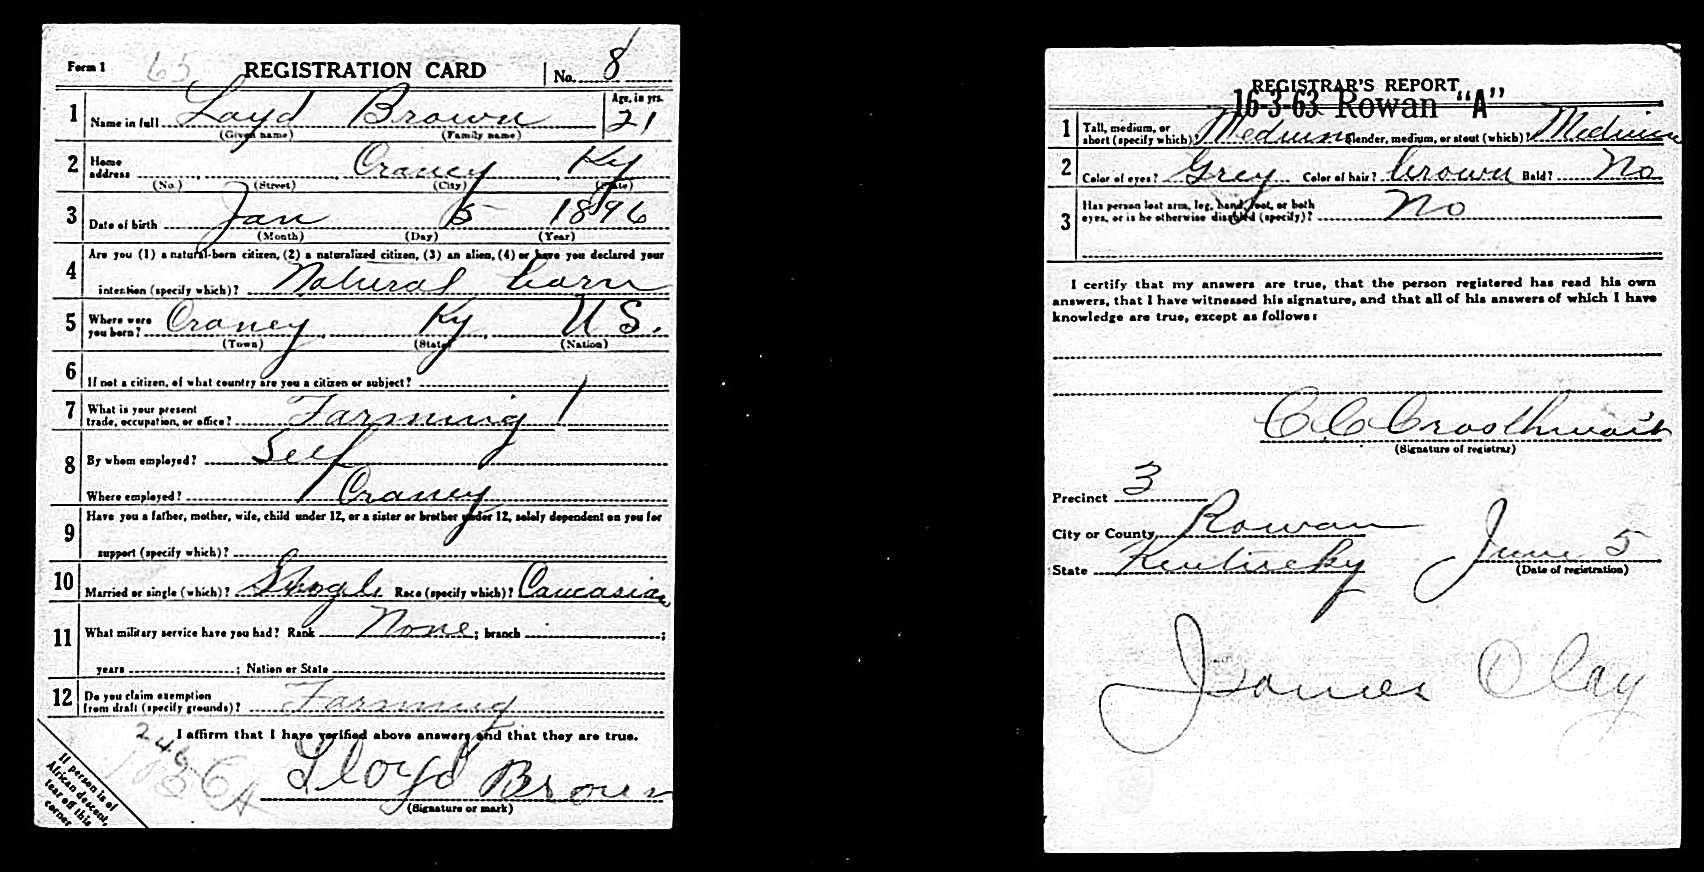 Form 1 65 REGISTRATION CARD No. 8
1 Name in full Loyd Brown Age, in yrs. 21
(Given name) (Family name)
2 Home address Craney Ky
(No.) (Street) (City) (State)
3 Date of birth Jan 5 1896
(Month) (Day) (Year)
4 Are you (1) a natural-born citizen, (2) a naturalized citizen, (3) an alien, (4) or have you declared your
intention (specify which)? Natural born
5 Where were you born? Craney Ky U S.
(Town) (State) (Nation)
6 If not a citizen, of what country are you a citizen or subject?
7 What is your present trade, occupation, or office? Farming
8 By whom employed? Self
Where employed? Craney
9 Have you a father, mother, wife, child under 12, or a sister or brother under 12, solely dependent on you for
support (specify which)?
10 Married or single (which)? Single Race (specify which)? Caucasian
11 What military service have you had? Rank None ; branch ;
years ; Nation or State
12 Do you claim exemption from draft (specify grounds)? Farming
I affirm that I have verified above answers and that they are true.
Lloyd Brown
(Signature or mark)
If person is of
African descent,
tear off this
corner
REGISTRAR'S REPORT
16-3-63 Rowan "A"
1 Tall, medium, or short (specify which)? Medium Slender, medium, or stout (which)? Medium
2 Color of eyes? Grey Color of hair? brown Bald? No
3 Has person lost arm, leg, hand, foot, or both
eyes, or is he otherwise disabled (specify)? No
I certify that my answers are true, that the person registered has read his own
answers, that I have witnessed his signature, and that all of his answers of which I have
knowledge are true, except as follows:
C C Crosthwait
(Signature of registrar)
Precinct 3
City or County Rowan
State Kentucky June 5
(Date of registration)
James Clay